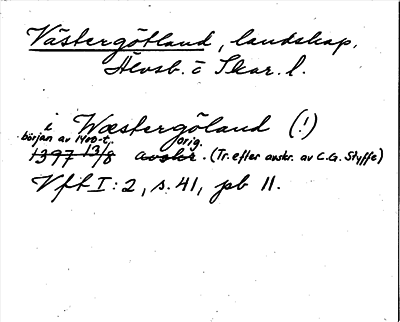 Västergötland, landskap.
Älvsb. o Skar. l.
i Wæstergöland (!)
början av 1400-t. orig.
1397 13/8 avskr. (Tr. efter avskr. av C.G. Styffe)
Vft I:2, s. 41, pb 11.